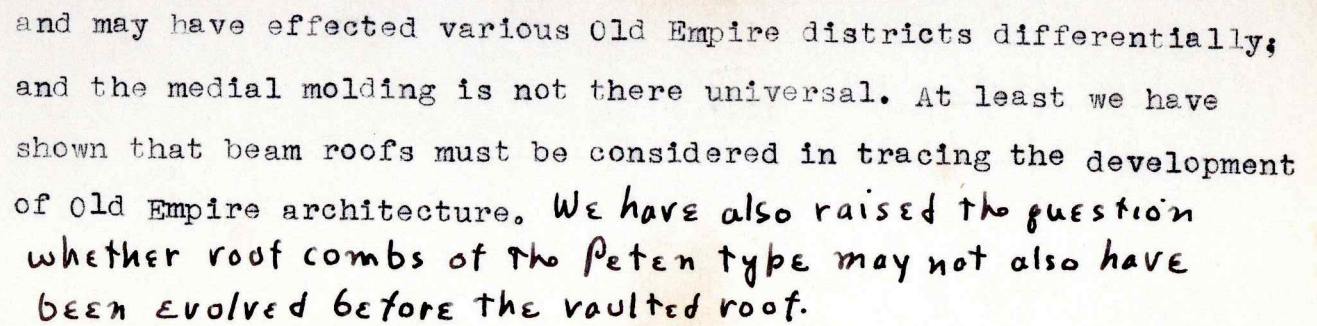 and may have effected various Old Empire districts differentially;
and the medial molding is not there universal. At least we have
shown that beam roofs must be considered in tracing the development
of Old Empire architecture. We have also raised the question
whether roof combs of the Peten type may not also have
been evolved before the vaulted roof.